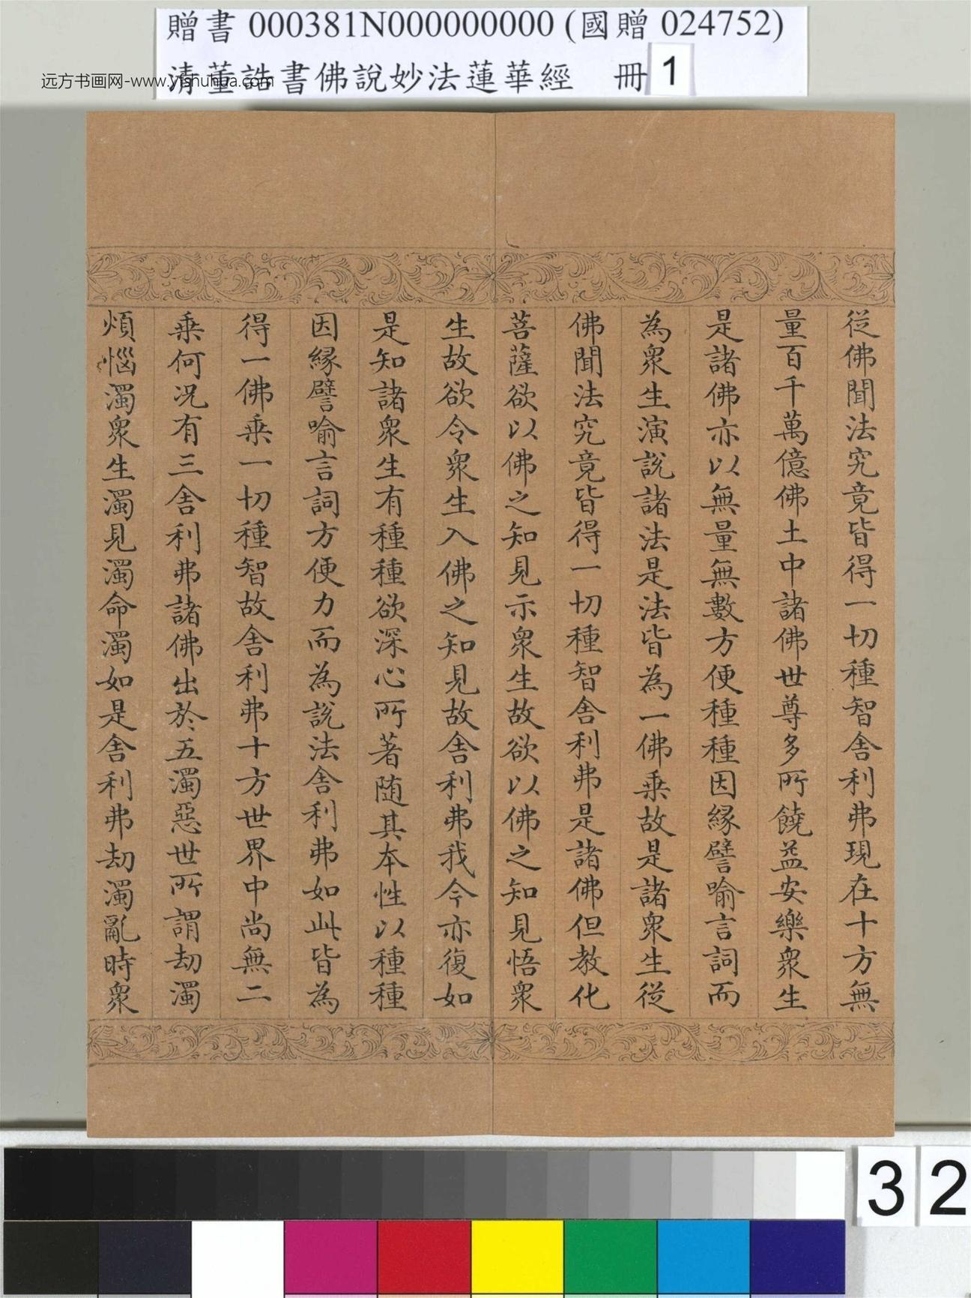 贈書 000381N000000000 (國贈 024752)
清董誥書佛說妙法蓮華經 冊 1
远方书画网-www.yishuhua.com
從佛聞法究竟皆得一切種智舍利弗現在十方無
量百千萬億佛土中諸佛世尊多所饒益安樂衆生
是諸佛亦以無量無數方便種種因緣譬喻言詞而
為衆生演說諸法是法皆為一佛乘故是諸衆生從
佛聞法究竟皆得一切種智舍利弗是諸佛但教化
菩薩欲以佛之知見示衆生故欲以佛之知見悟衆
生故欲令衆生入佛之知見故舍利弗我今亦復如
是知諸衆生有種種欲深心所著随其本性以種種
因緣譬喻言詞方便力而為說法舍利弗如此皆為
得一佛乘一切種智故舍利弗十方世界中尚無二
乘何况有三舍利弗諸佛出於五濁惡世所謂劫濁
煩惱濁衆生濁見濁命濁如是舍利弗劫濁亂時衆
32